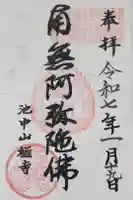 奉拝 令和七年一月
南無阿弥陀佛
池中山極寺